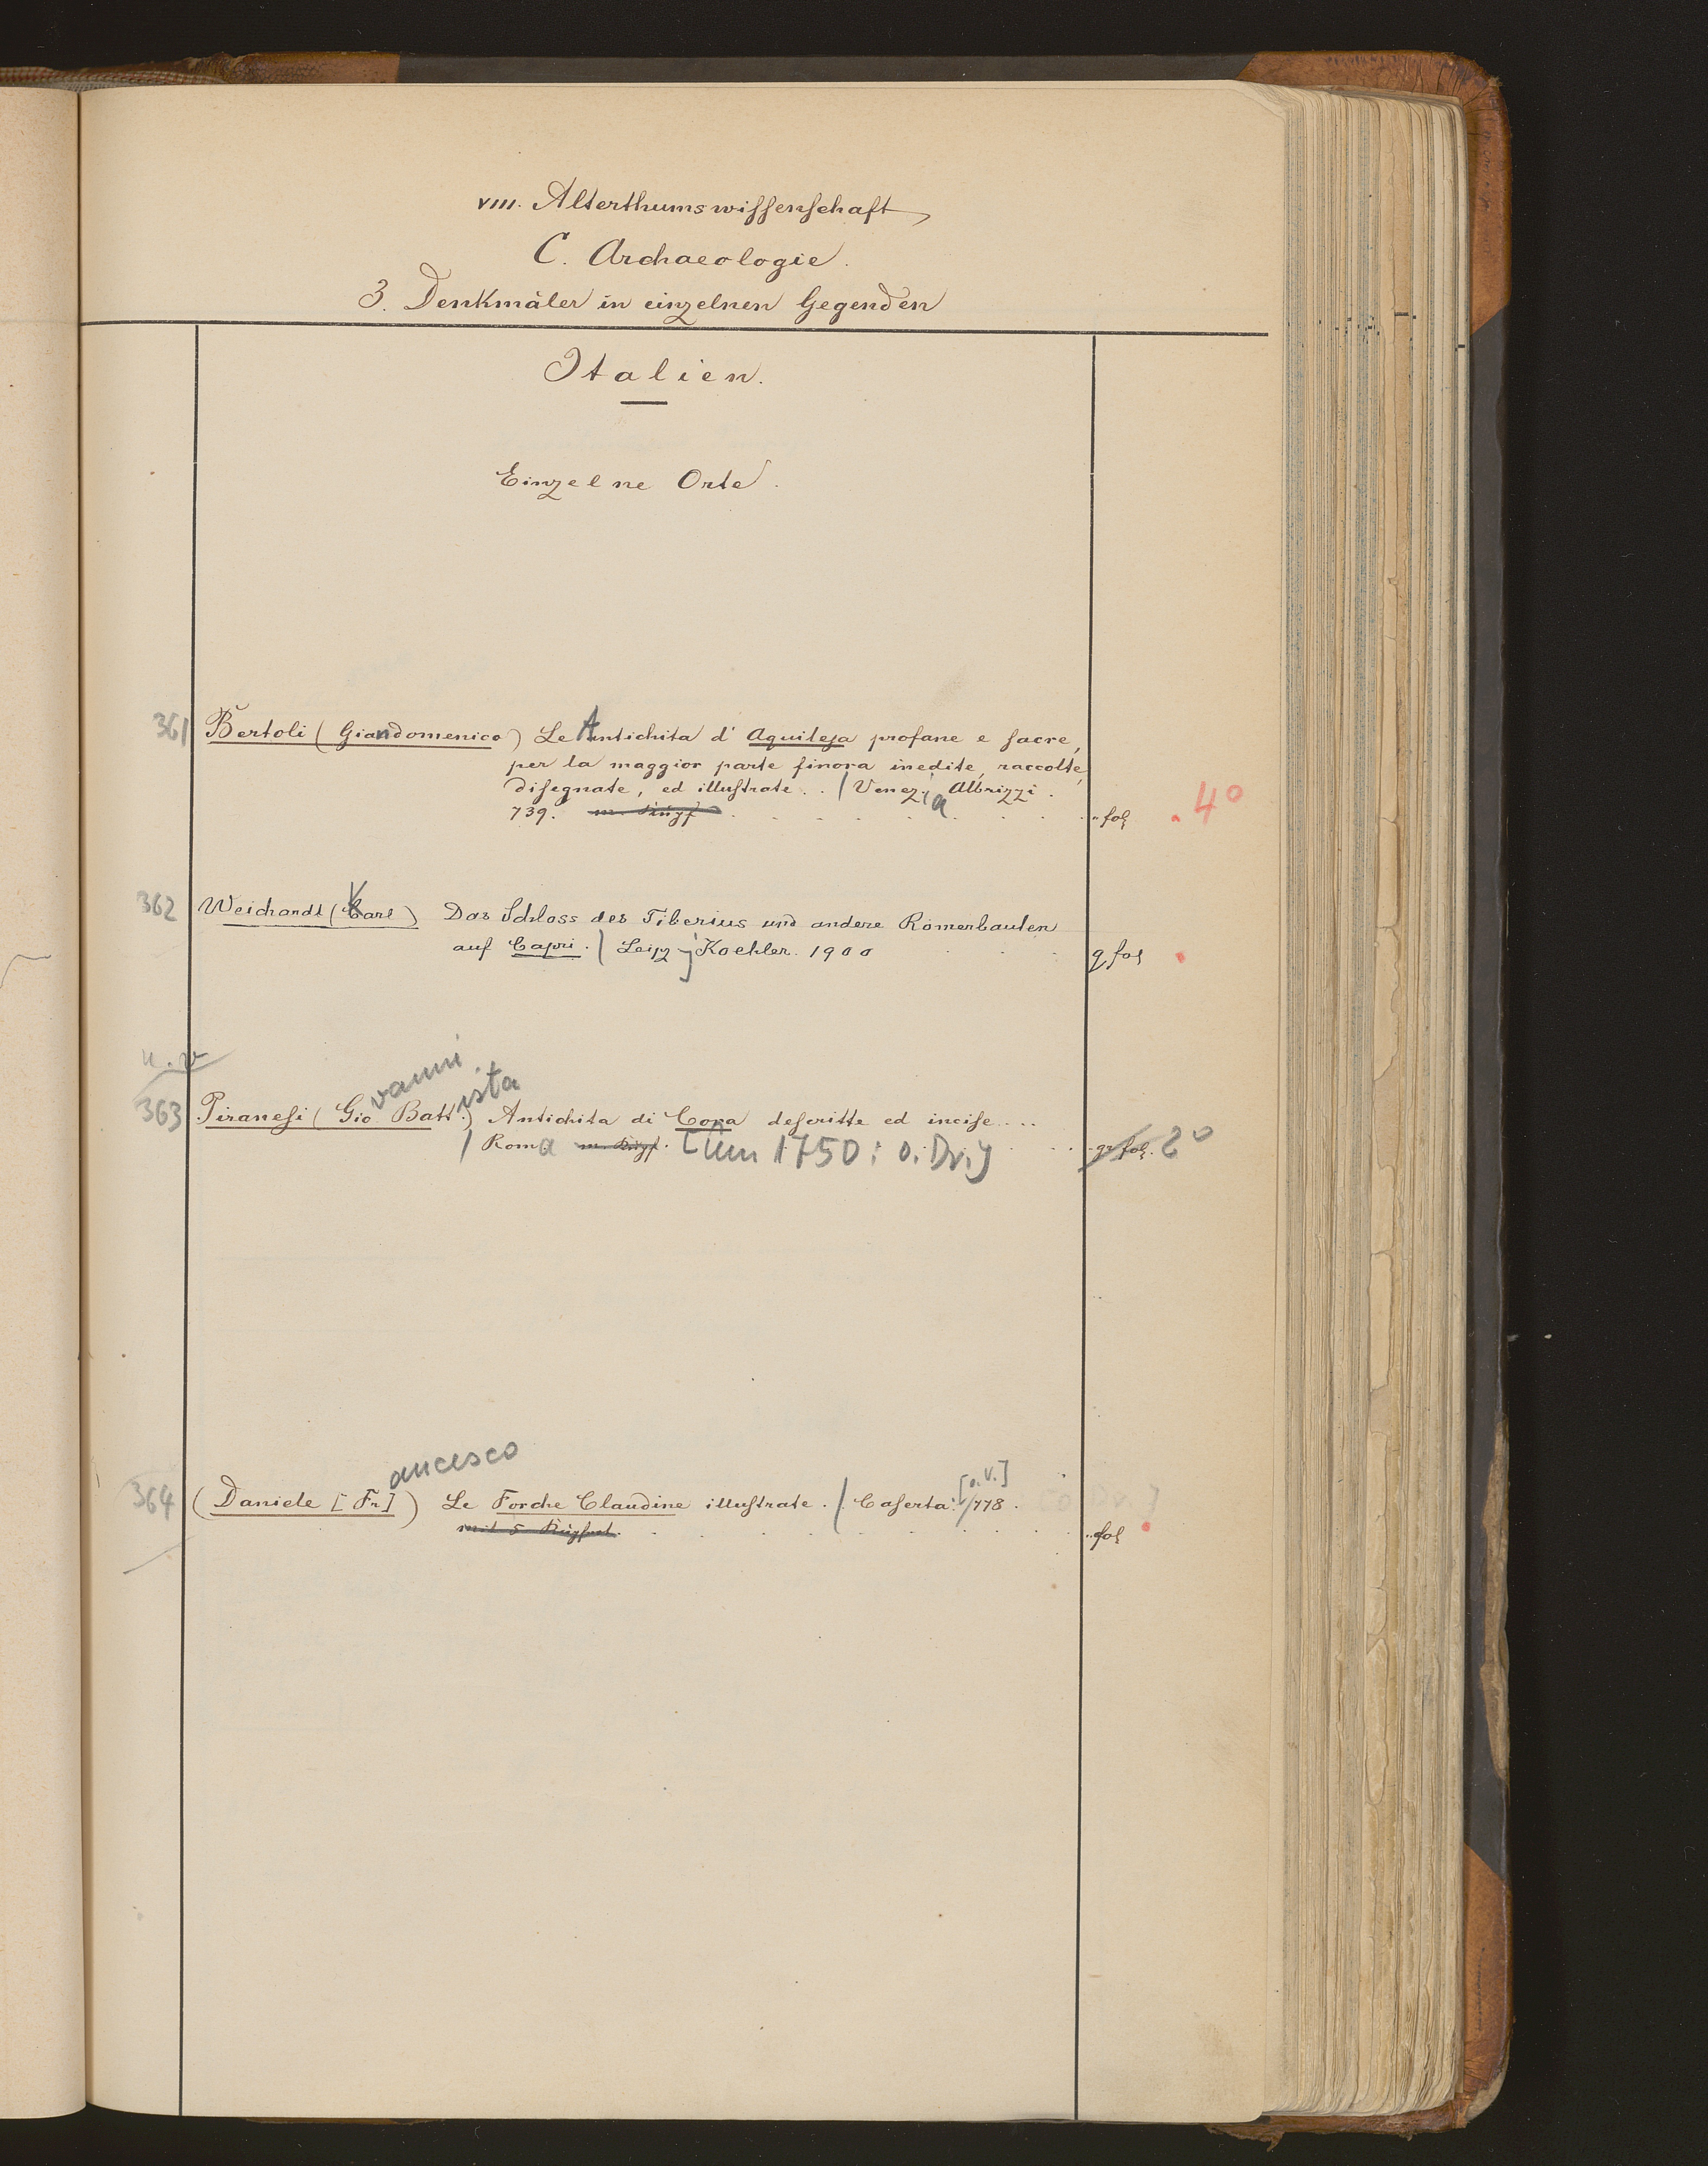 VIII. Alterthumswissenschaft
C. Archaeologie.
3. Denkmäler in einzelnen Gegenden
Italien.
Einzelne Orte.
361 Bertoli (Giandomenico) Le Antichita d' Aquileja profane e sacre,
per la maggior parte finora inedite, raccolte,
disegnate, ed illustrate. . / Venezia, Albrizzi.
739. fol. 4°
362 Weichardt (Karl) Das Schloss des Tiberius und andere Römerbauten
auf Capri. / Leipz Koehler. 1900 q fol
363 Piranesi (Giovanni Battista) Antichita di Cora descritte ed incise....
/ Roma m. Kupf. [um 1750: o. Dr.] gr fol. 2°
364 (Daniele [Francesco]) Le Forche Claudine illustrate. / Caserta: [o. V.] 778.
mit 5 fol